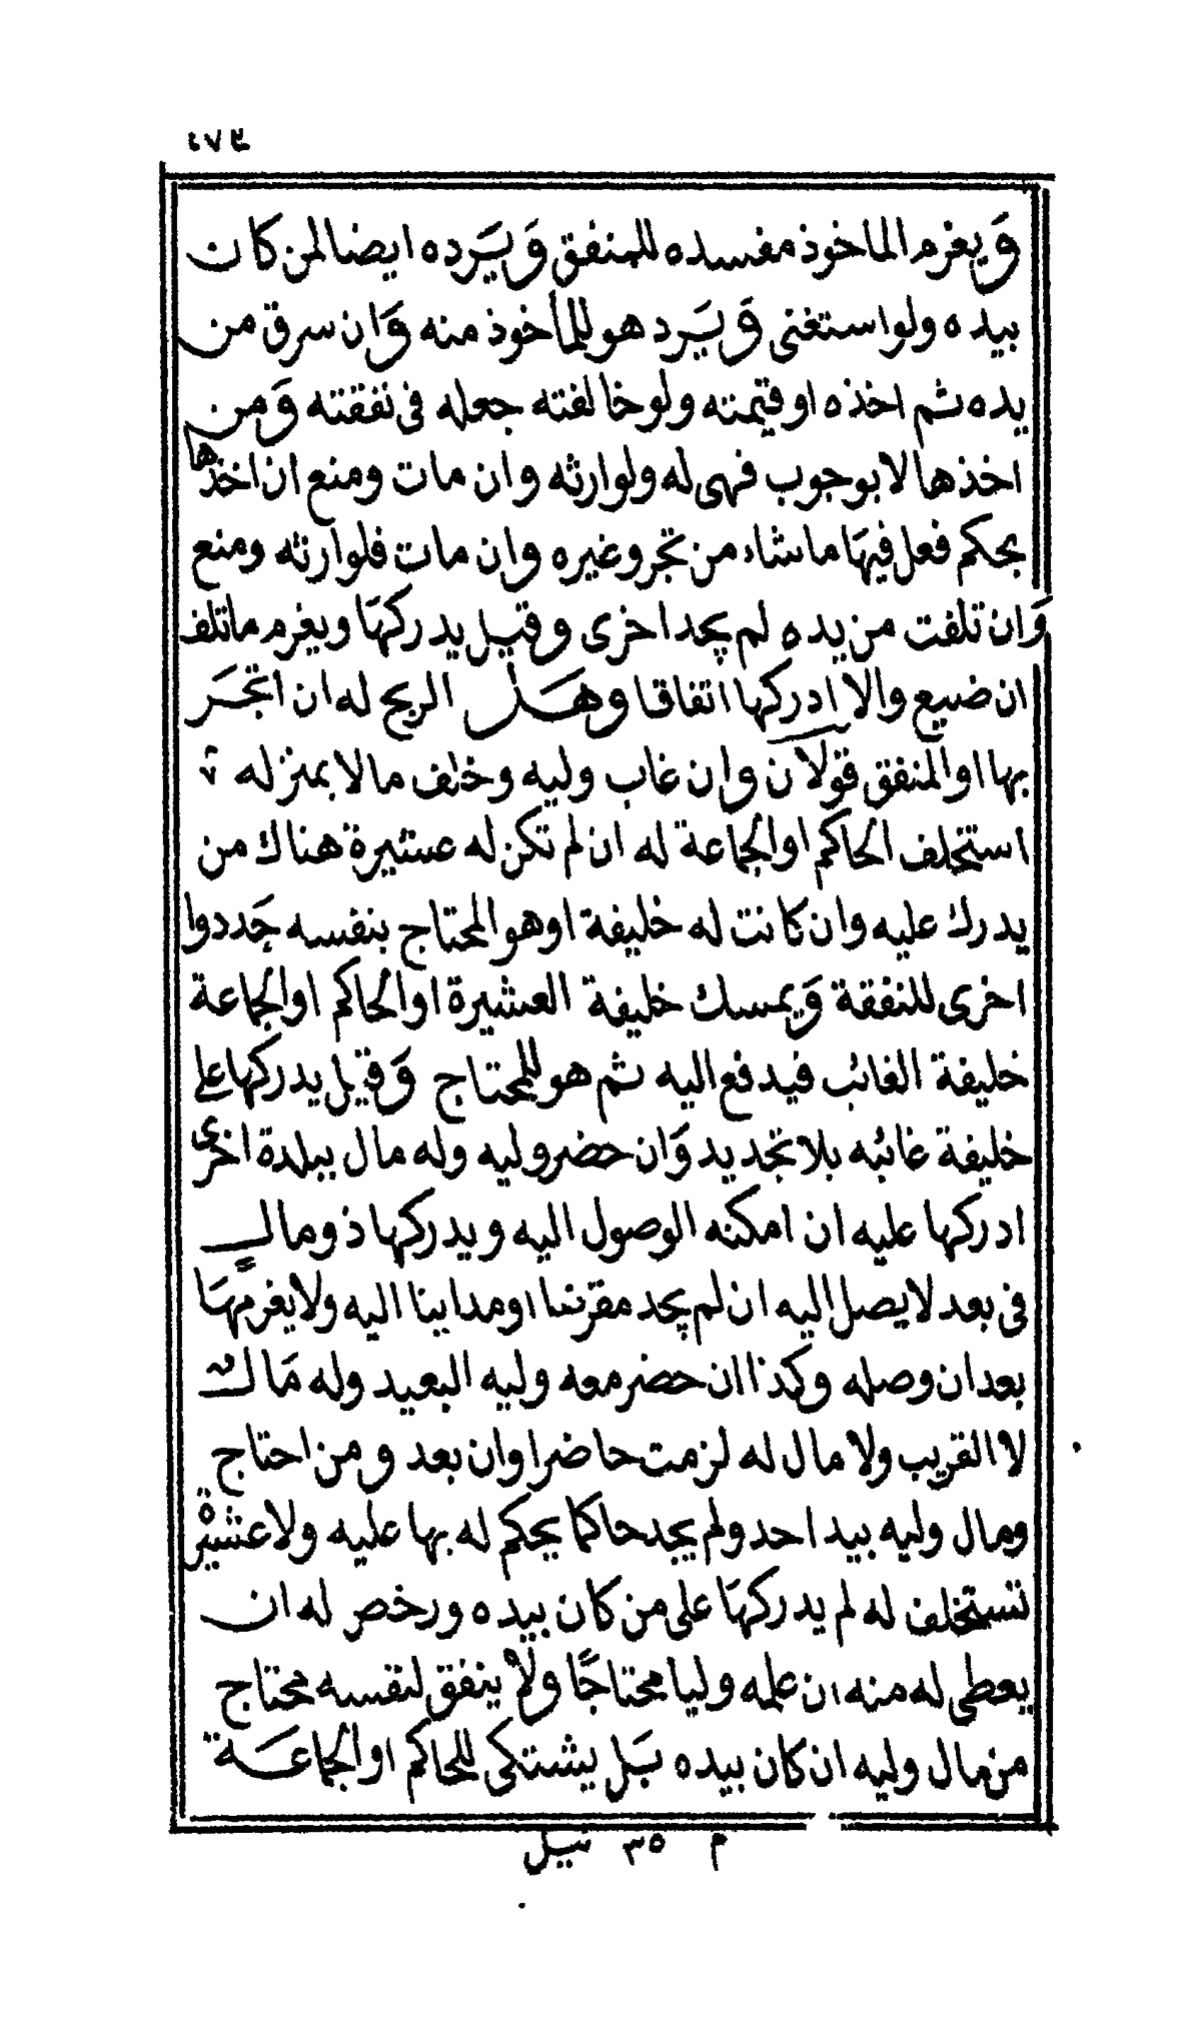 ٤٧٣
وَيغرم الماخوذ مفسده للمنفق وَيَرده ايضا لمن كان
بيده ولو استغنى وَيَرد هو للماخوذ منه وَان سرق من
يده ثم اخذه او قيمته ولو خالفته جعله فى نفقته وَمن
اخذها لا بوجوب فهى له ولوارثه وان مات ومنع ان اخذها
بحكم فعل فيهَا ما شاء من تجر وغيره وان مات فلوارثه ومنع
وَان تلفت من يده لم يجد اخرى وقيل يدركهَا ويغرم ما تلف
ان ضيع والا ادركها اتفاقا وهَل الربح له ان اتجَر
بها او المنفق قولان وان غاب وليه وخلف مالا بمنزله
استخلف الحاكم او الجماعة له ان لم تكن له عشيرة هناك من
يدرك عليه وان كانت له خليفة او هو المحتاج بنفسه جَددوا
اخرى للنفقة وَيمسك خليفة العشيرة او الحاكم او الجماعة
خليفة الغائب فيدفع اليه ثم هو للمحتاج وَقيل يدركها على
خليفة غائبه بلا تجديد وَان حضر وليه وله مال ببلدة اخرى
ادركها عليه ان امكنه الوصول اليه ويدركها ذو مالٍ
فى بعد لا يصل اليه ان لم يجد مقرضا او مداينا اليه ولا يغرمهَا
بعد ان وصله وكذا ان حضر معه وليه البعيد وله مَال
لا القريب ولا مال له لزمت حاضرا وان بعد ومن احتاج
ومال وليه بيد احد ولم يجد حاكما يحكم له بها عليه ولا عشيرة
تستخلف له لم يدركهَا على من كان بيده ورخص له ان
يعطى له منه ان علمه وليا محتاجًا ولا ينفق لنفسه محتاج
من مال وليه ان كان بيده بَل يشتكى للحاكم او الجماعَة
م ٣٥ نيل